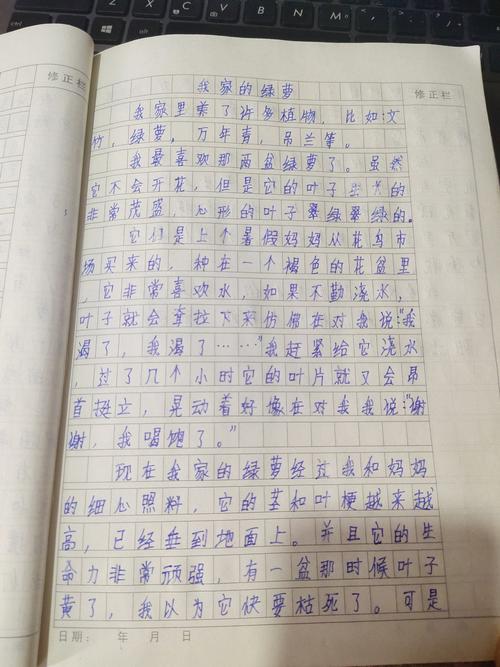 修正栏
修正栏
我家的绿萝
我家里养了许多植物，比如：文
竹，绿萝，万年青，吊兰等。
我最喜欢那两盆绿萝了。虽然
它不会开花，但是它的叶子的
非常茂盛，心形的叶子翠绿翠绿的。
它们是上个暑假妈妈从花鸟市
场买来的，种在一个褐色的花盆里
，它非常喜欢水，如果不勤浇水，
叶子就会耷拉下来仿佛在对我说:"我
渴了，我渴了……"我赶紧给它浇水
，过了几个小时它的叶片就又会昂
首挺立，晃动着好像在对我我说:"谢
谢，我喝饱了。"
现在我家的绿萝经过我和妈妈
的细心照料，它的茎和叶梗越来越
高，已经垂到地面上。并且它的生
命力非常顽强，有一盆那时候叶子
黄了，我以为它快要枯死了。可是
日期： 年 月 日